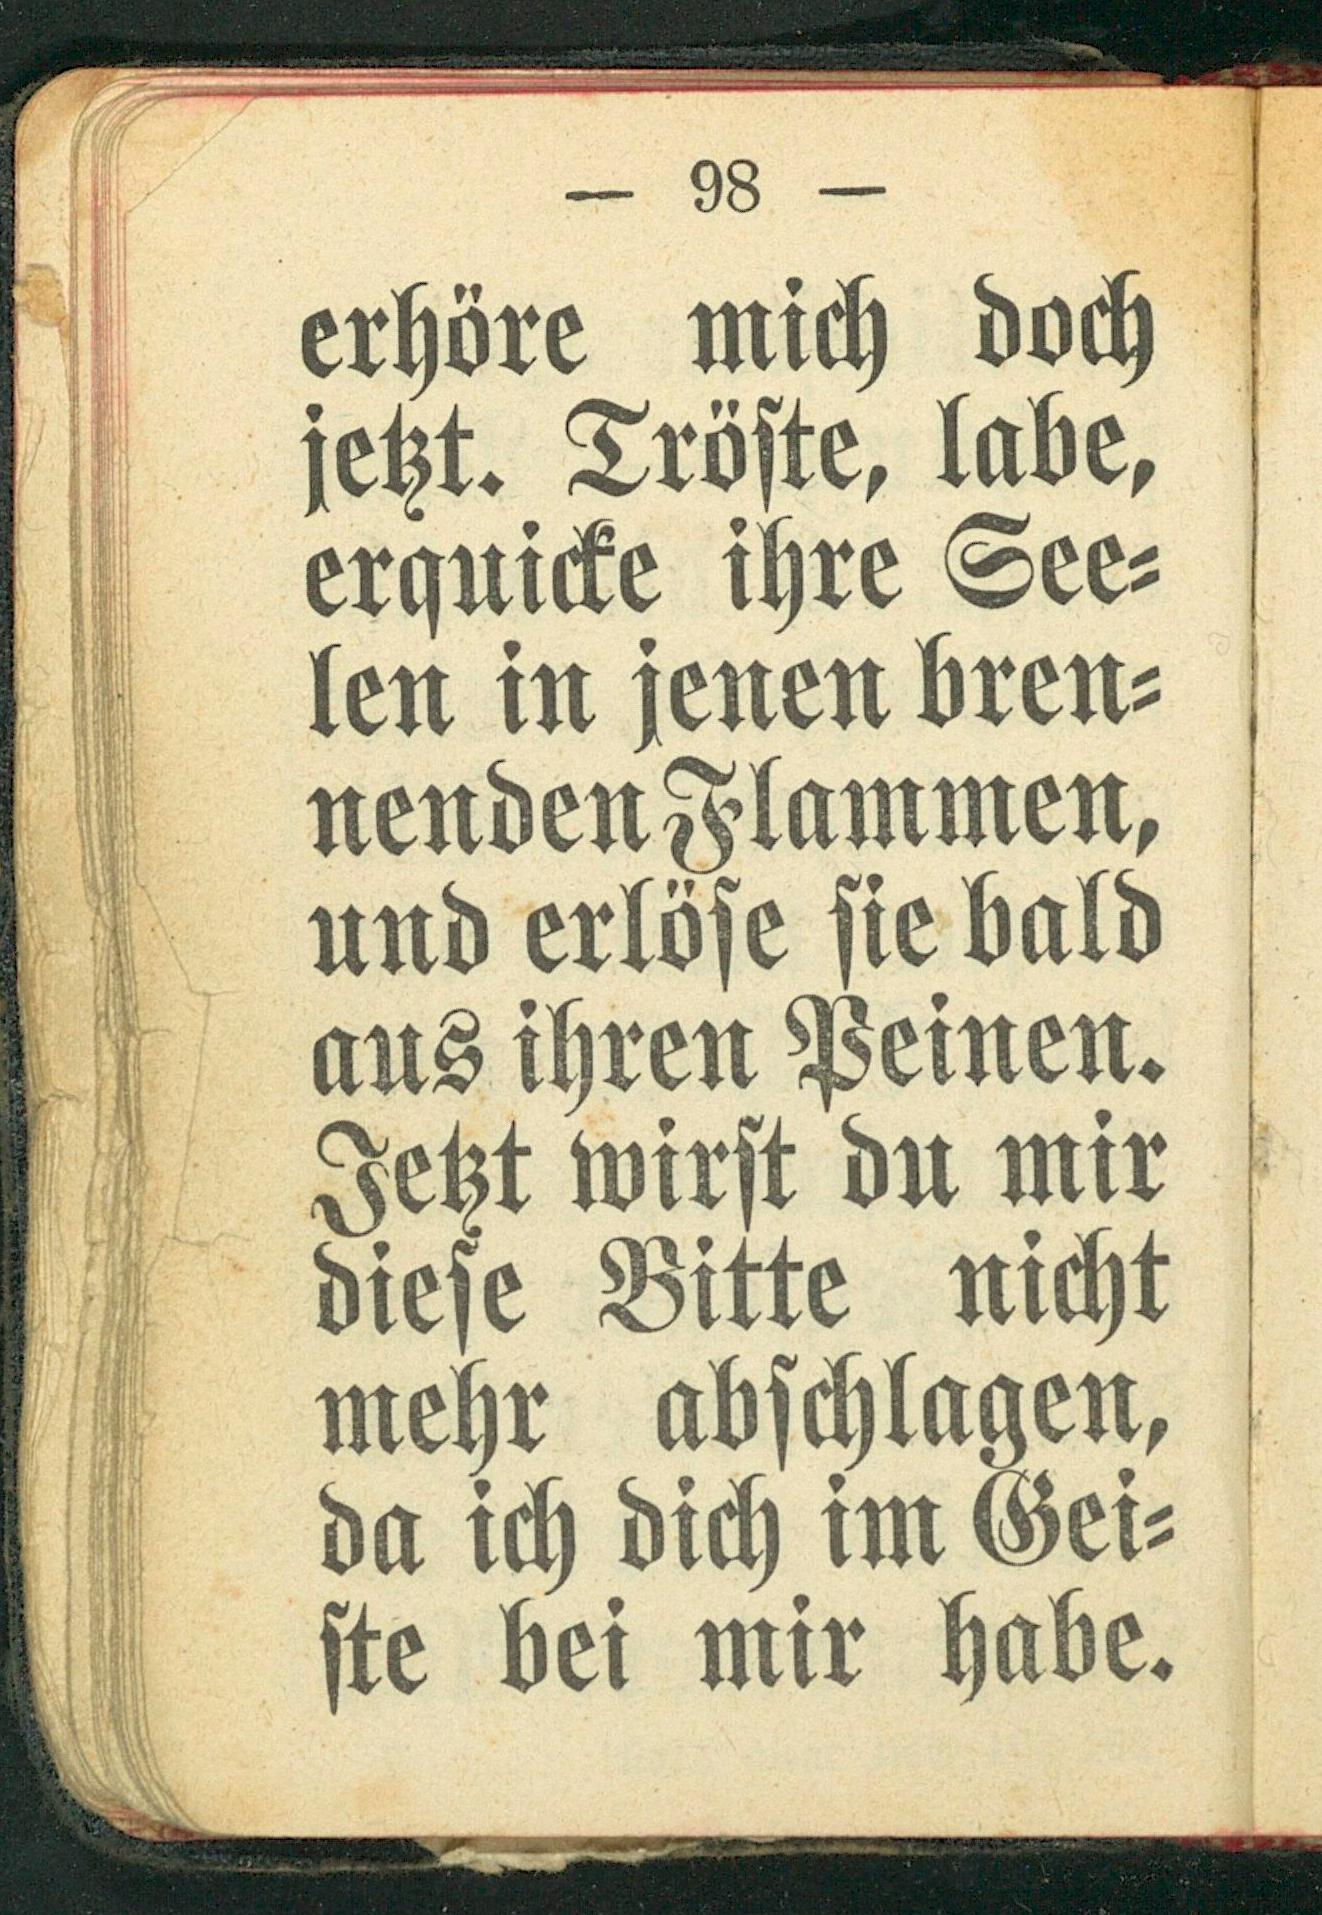 — 98 —
erhöre mich doch
jetzt. Tröſte, labe,
erquicke ihre See⸗
len in jenen bren⸗
nenden Flammen,
und erlöſe ſie bald
aus ihren Peinen.
Jetzt wirſt du mir
dieſe Bitte nicht
mehr abſchlagen,
da ich dich im Gei⸗
ſte bei mir habe.